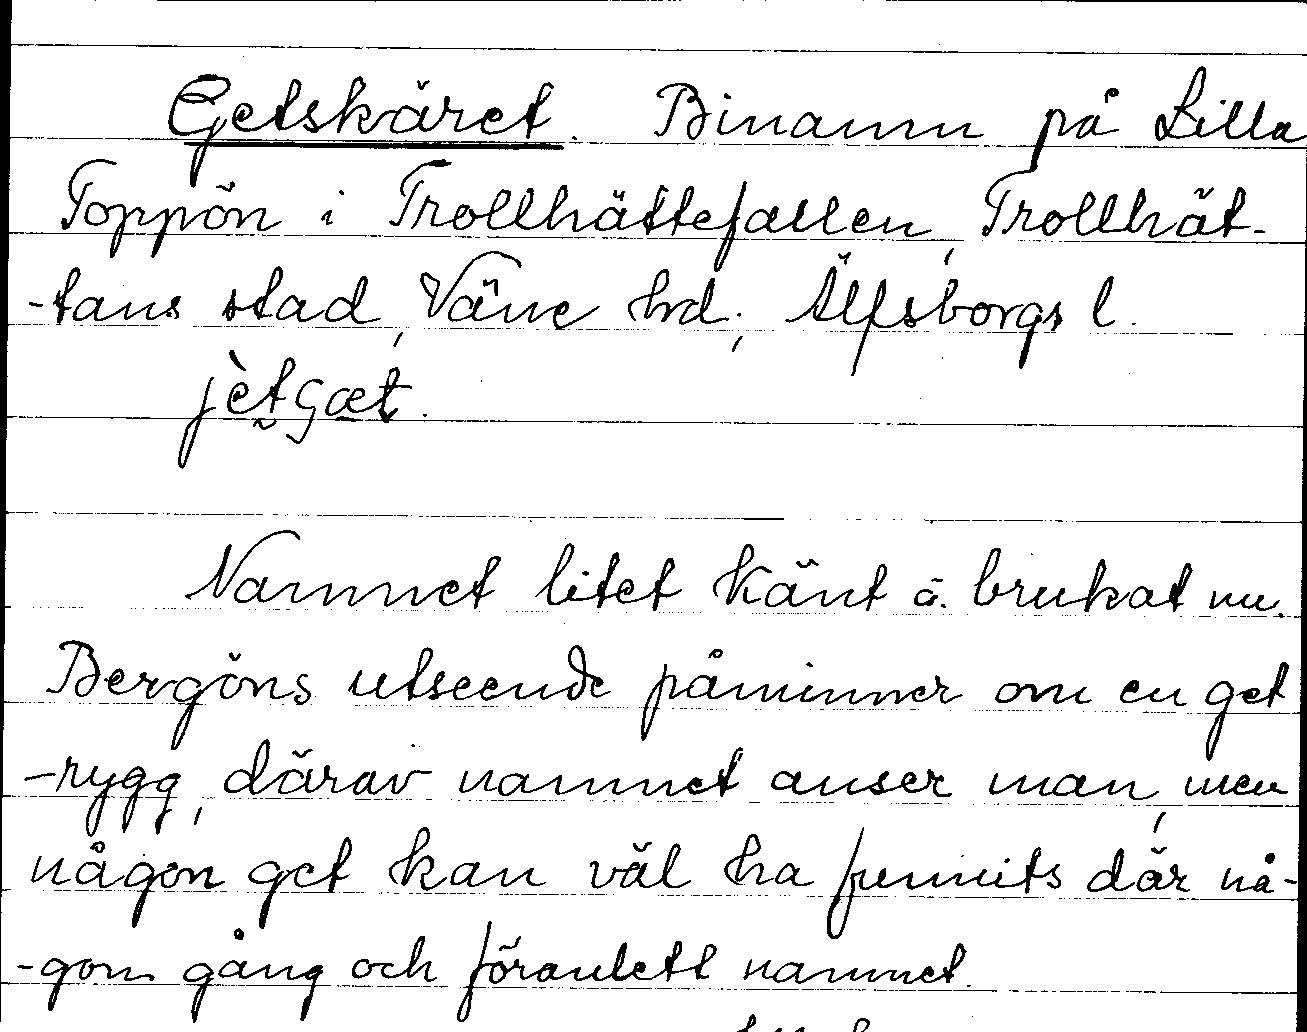 Getskäret. Binamn på Lilla
Toppön i Trollhättefallen, Trollhät-
-tans stad, Väne hd, Älfsborgs l.
Namnet litet känt o. brukat nu.
Bergöns utseende påminner om en get
-rygg, därav namnet anser man, men
någon get kan väl ha funnits där nå-
-gon gång och föranlett namnet.